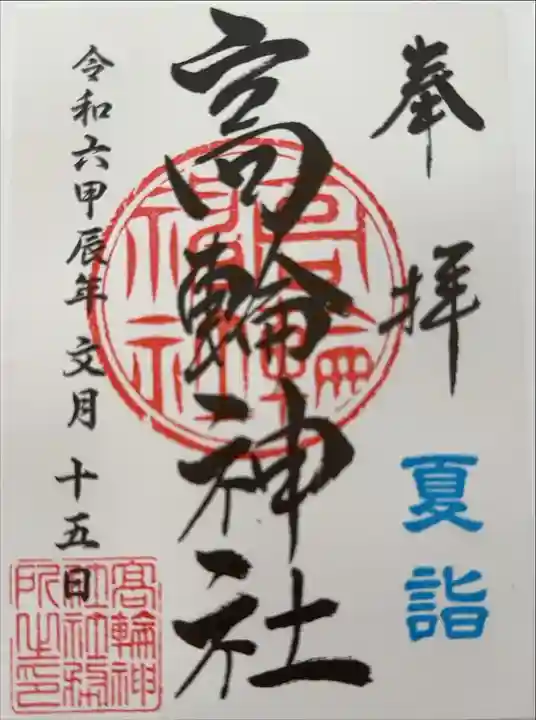 奉拝
夏詣
高輪神社
高輪神社
令和六甲辰年 文月 十五日
高輪神社社務所之印